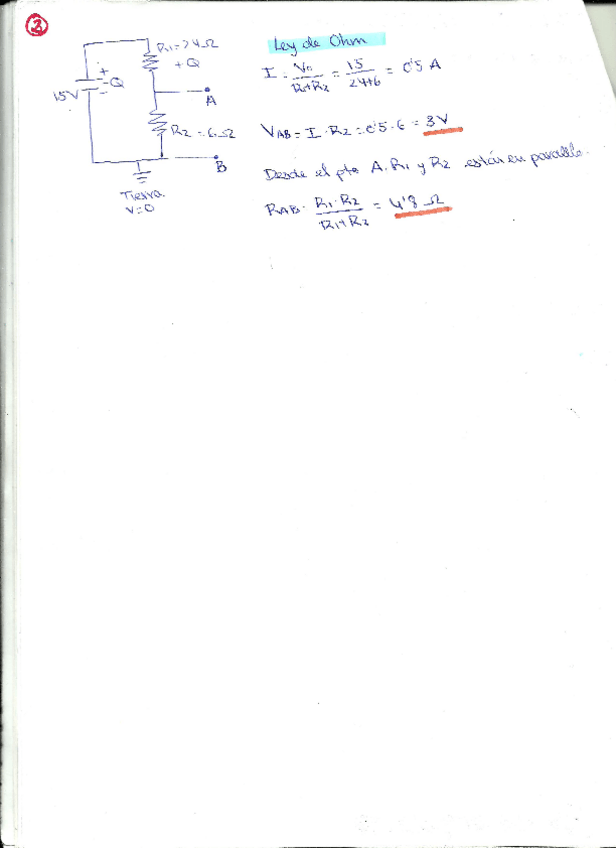 2
R1=24Ω
+Q
+
-Q
15V
A
R2=6Ω
B
Tierra
V=0
Ley de Ohm
I = Vn / R1+R2 = 15 / 24+6 = 0'5 A
VAB = I·R2 = 0'5·6 = 3V
Desde el pto A. R1 y R2 están en paralelo.
RAB = R1·R2 / R1+R2 = 4'8 Ω